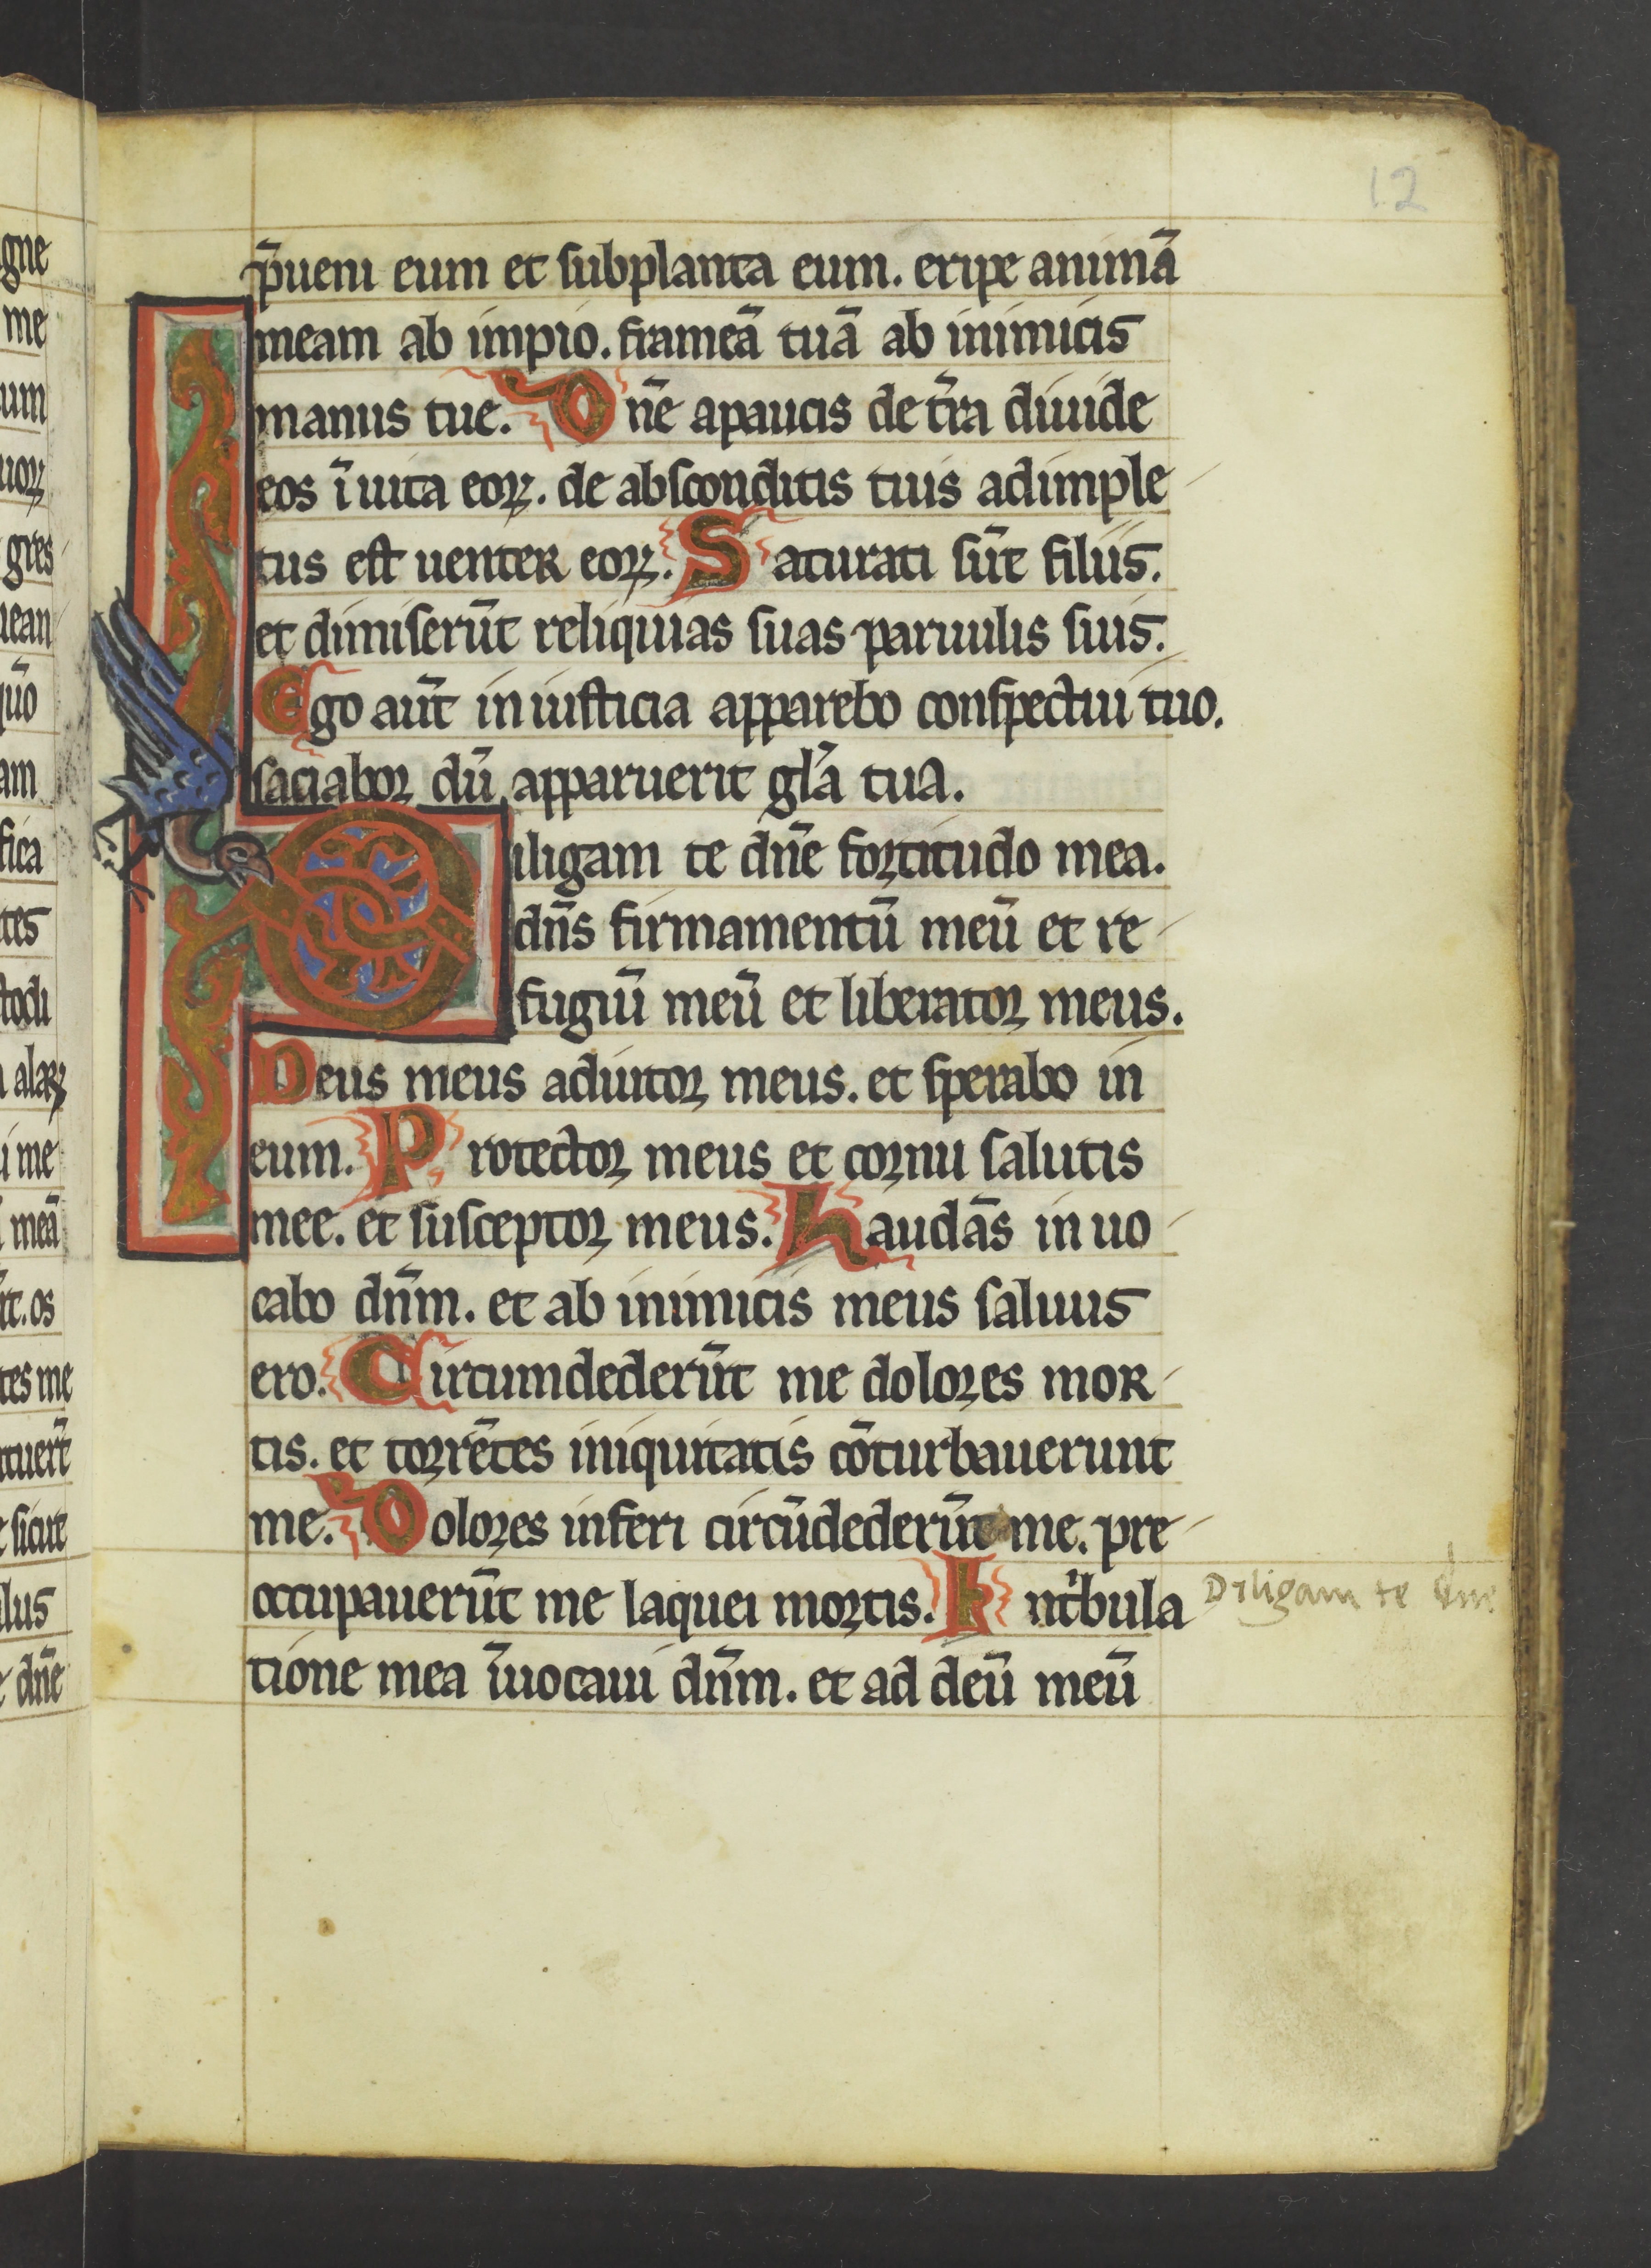 12
p̄ueni eum et subplanta eum. eripe animā
meam ab impio. frameā tuā ab inimicis
manus tue. Dn̄e apaucis de tr̄ra diuide
eos ī uita eoꝝ. de absconditis tuis adimple
tus est uenter eoꝝ. Saturati sūt filiis.
et dimiserūt reliquias suas paruulis suis.
Ego aūt in iusticia apparebo conspectui tuo.
saciabor dū apparuerit gl̄a tua.
Diligam te dn̄e fortitudo mea.
dn̄s firmamentū meū et re
fugiū meū et liberator meus.
Deus meus adiutor meus. et sperabo in
eum. Protector meus et cornu salutis
mee. et susceptor meus. Laudās in uo
cabo dn̄m. et ab inimicis meus saluus
ero. Circumdederūt me dolores mor
tis. et torrētes iniquitatis cōturbauerunt
me. Dolores inferi circūdederūt me. pre
occupauerūt me laquei mortis. In tⁱbula
Diligam te dn̄e
tione mea īuocaui dn̄m. et ad deū meū